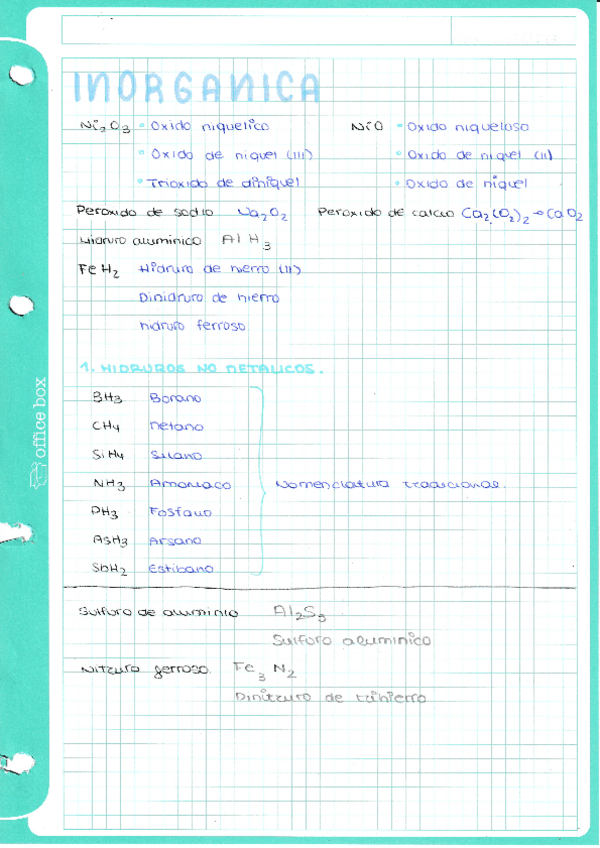 INORGANICA
Ni₂O₃ • Oxido niquelico NiO • Oxido niqueloso
• Oxido de niquel (III) • Oxido de niquel (II)
• Trioxido de diniquel • Oxido de niquel
Peroxido de sodio Na₂O₂ Peroxido de calcio Ca₂(O₂)₂→CaO₂
Hidruro aluminico AlH₃
FeH₂ Hidruro de hierro (II)
Dihidruro de hierro
hidruro ferroso
1. HIDRUROS NO METALICOS.
BH₃ Borano
CH₄ Metano
SiH₄ Silano
NH₃ Amoniaco Nomenclatura tradicional.
PH₃ Fosfano
AsH₃ Arsano
SbH₂ Estibano
Sulfuro de aluminio Al₂S₃
Sulfuro aluminico
Nitruro ferroso. Fe₃N₂
Dinitruro de trihierro
office box